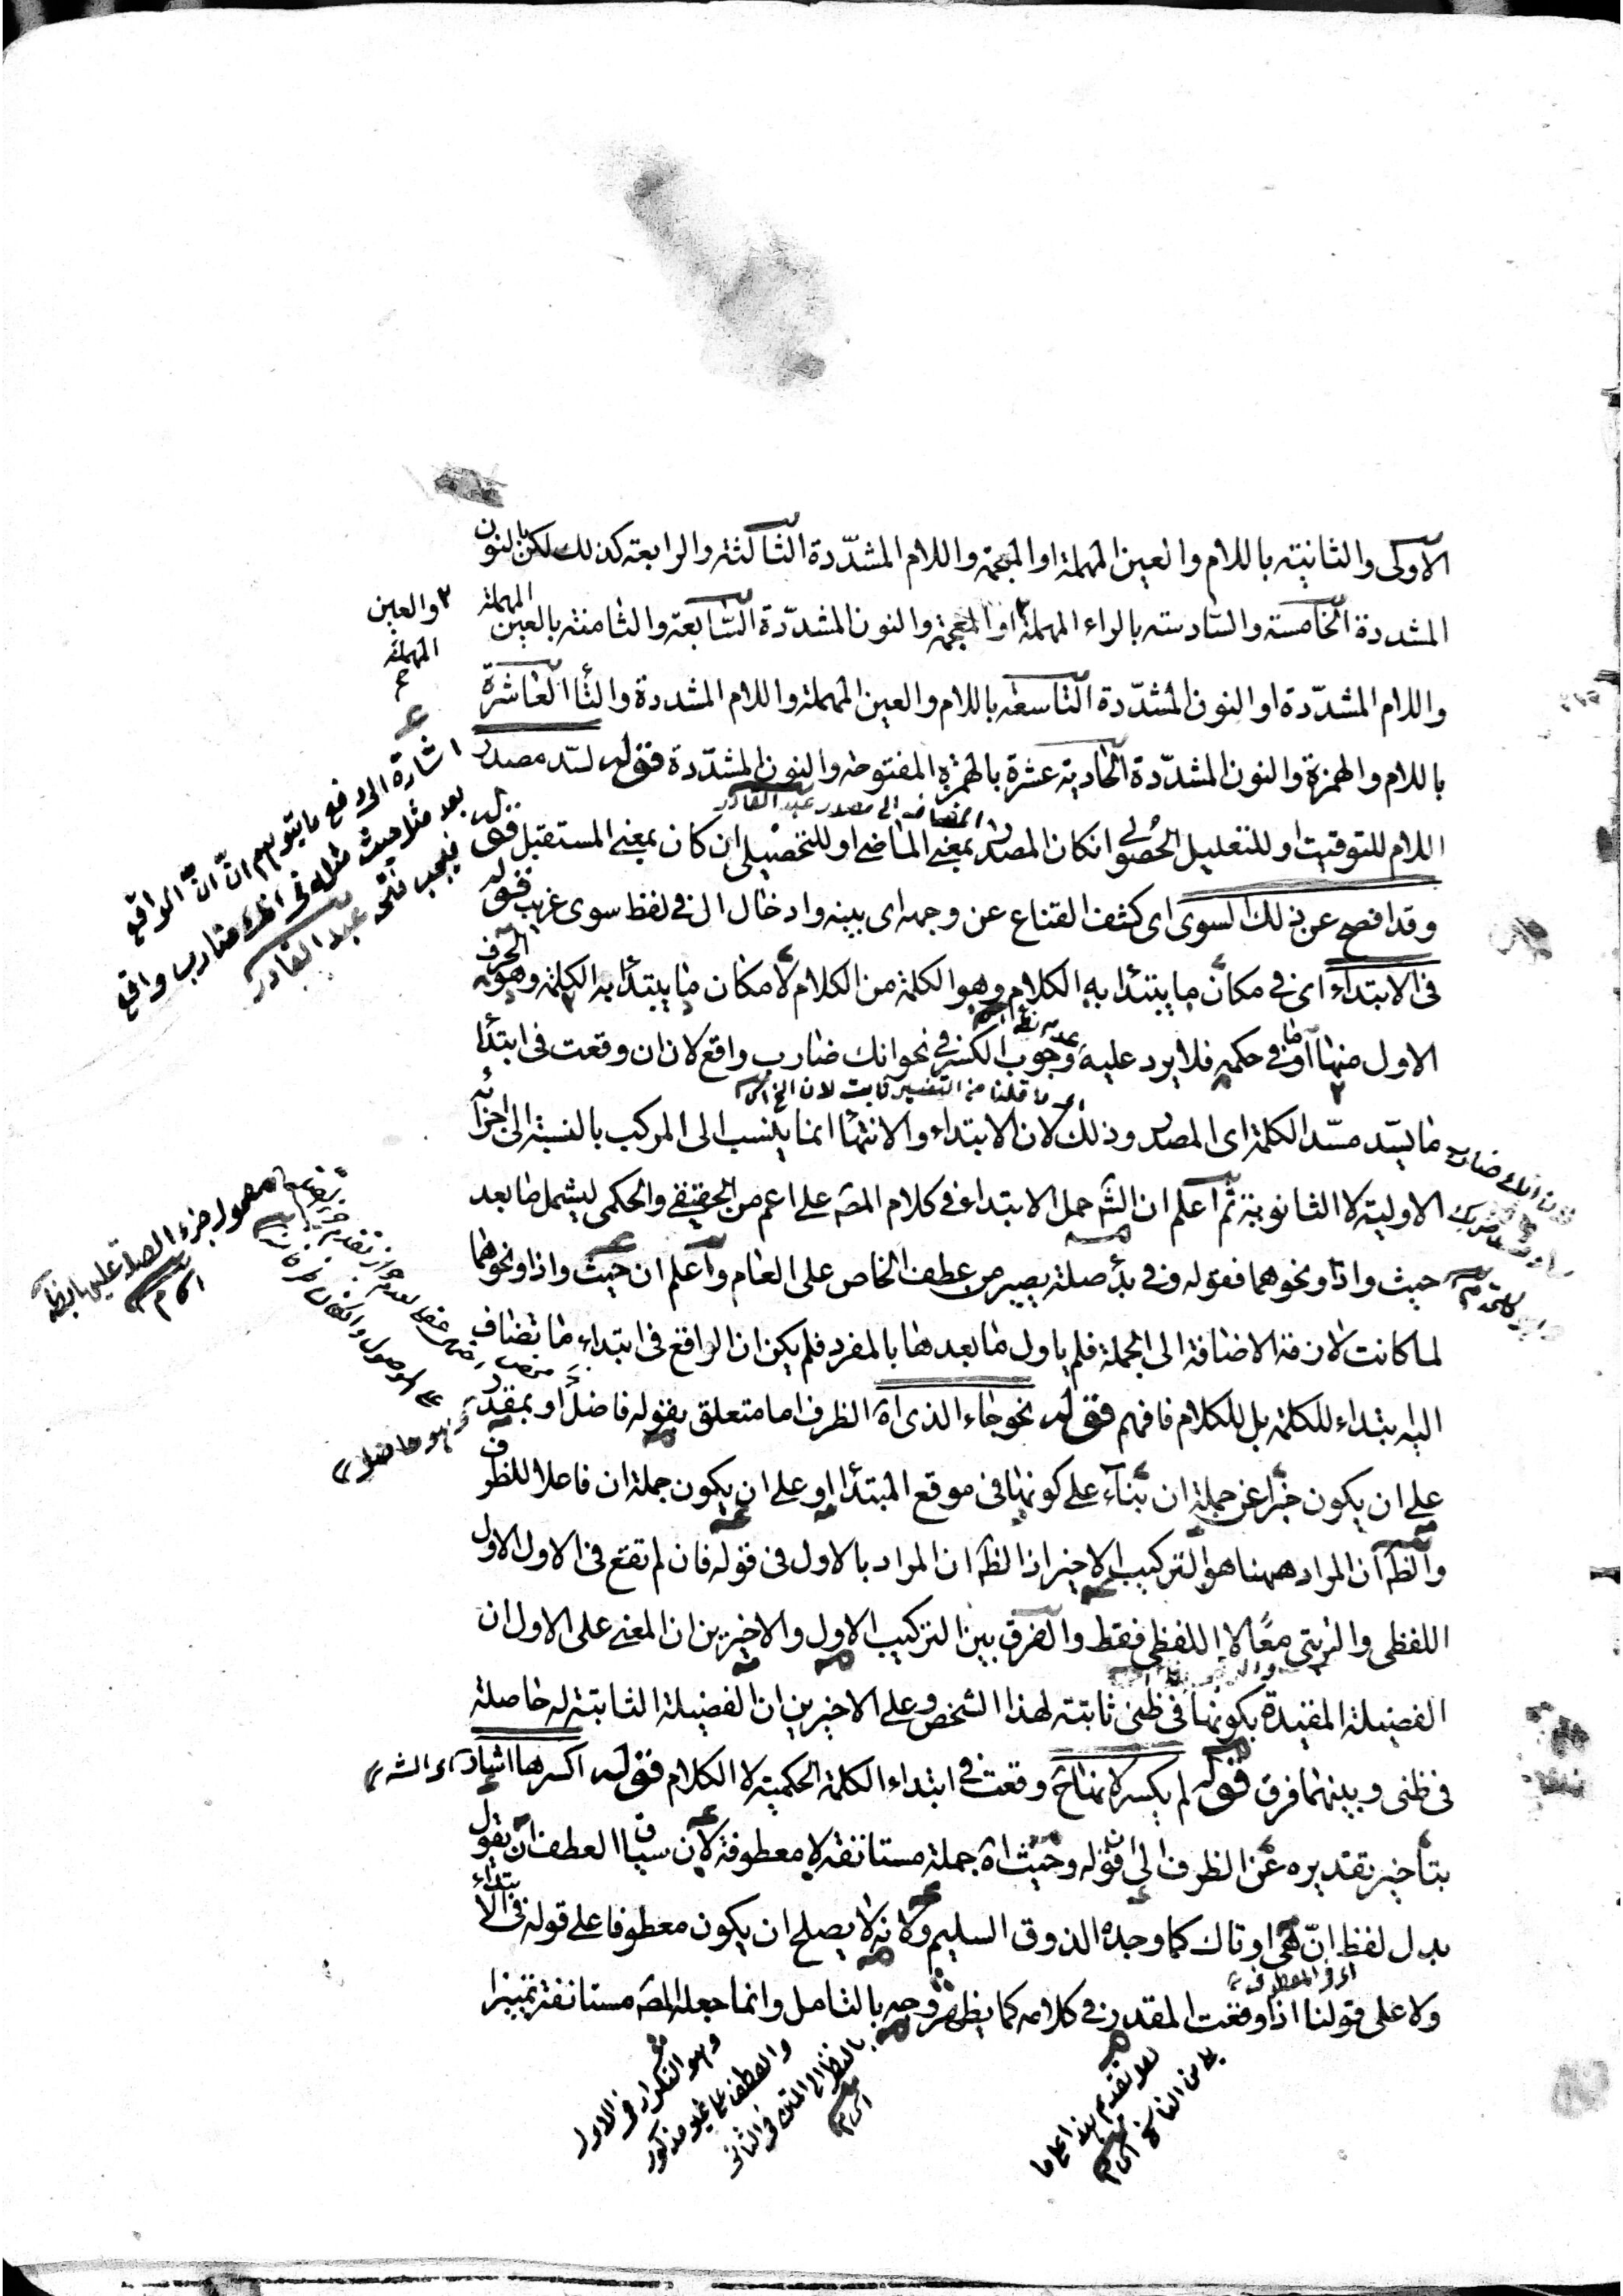 الاولى والثانية باللام والعين المهملة او المعجمة واللام المشدّدة الثالثة والرابعة كذلك لكن بالنون
المشددة الخامسة والسادسة بالراء المهملة او المعجمة والنون المشدّدة السّابعة والثامنة بالعين المهملة
واللام المشدّدة او النون المشدّدة التاسعة باللام والعين المهملة واللام المشددة والنا العاشرة
باللام والهمزة والنون المشدّدة الحادية عشرة بالهمزة المفتوحة والنون المشدّدة قوله لسد مصدر
اللام للتوقيت او للتعليل الحصولى انكان المصدر بمعنى الماضى او للتحصيلى ان كان بمعنى المستقبل قوله
وقد افصح عن ذلك السوى اى كشف القناع عن وجهه اى بينه وادخال ال فى لفظ سوى غريب قوله
فى الابتداء اى فى مكان ما يبتدأ به الكلام وهو الكلمة من الكلام لا مكان ما يبتدأ به الكلمة وهو الحرف
الاول منها او ما فى حكمه فلا يرد عليه وجوب الكسر فى نحو انك ضارب واقع لان ان وقعت فى ابتدأ
ما يسد مسد الكلمة اى المصدر وذلك لان الابتداء والانتها انما ينسب الى المركب بالنسبة الى اجزائه
الاولية لا الثانوية ثم اعلم ان الشه حمل الابتداء فى كلام المصه على اعم من الحقيقى والحكمى ليشمل ما بعد
حيث واذا ونحوهما فقوله وفى بدأ صلة يصير من عطف الخاص على العام واعلم ان حيث واذا ونحوهما
لما كانت لازمة الاضافة الى الجملة فلم ياول ما بعدها بالمفرد فلم يكن ان الواقع فى ابتداء ما تضاف
اليه ابتداء للكلمة بل للكلام فافهم قوله نحو جاء الذى اه الظرف اما متعلق بقوله فاضل او بمقدر
على ان يكون خبرا عن جملة ان بناء على كونها فى موقع المبتدأ او على ان يكون جملة ان فاعلا للظرف
والظه ان المراد ههنا هو التركيب الاخير اذ الظه ان المراد بالاول فى قوله فان لم تقع فى الاول الاول
اللفظى والرتبى معًا لا اللفظى فقط والفرق بين التركيب الاول والاخيرين ان المعنى على الاول ان
الفضيلة المقيدة بكونها فى ظنى ثابتة لهذا الشخص وعلى الاخيرين ان الفضيلة الثابتة له حاصلة
فى ظنى وبينهما فرق قوله لم يكسر لانها ح وقعت فى ابتداء الكلمة الحكمية لا الكلام قوله اكسرها اشار
بتأخير تقديره عن الظرف الى ان قوله وحيث اه جملة مستانفة لا معطوفة لان سياق العطف ان يقول
بدل لفظ انّ هى او تاك كما وجده الذوق السليم ولانه لا يصلح ان يكون معطوفا على قوله فى الابتداء
ولا على قولنا اذا وقعت المقدر فى كلامه كما يظهر وجهه بالتامل وانما جعله المصه مستانفة تمييزا
والعين
المهملة
اشارة الى دفع ما يتوهم انّ انّ الواقع
بعد مثل حيث مثله فى انك ضارب واقع
فيجب فتحه عبد القادر
معمول جزء الصلة على
وهو التكرار فى الاول
والعطف على غير مذكور